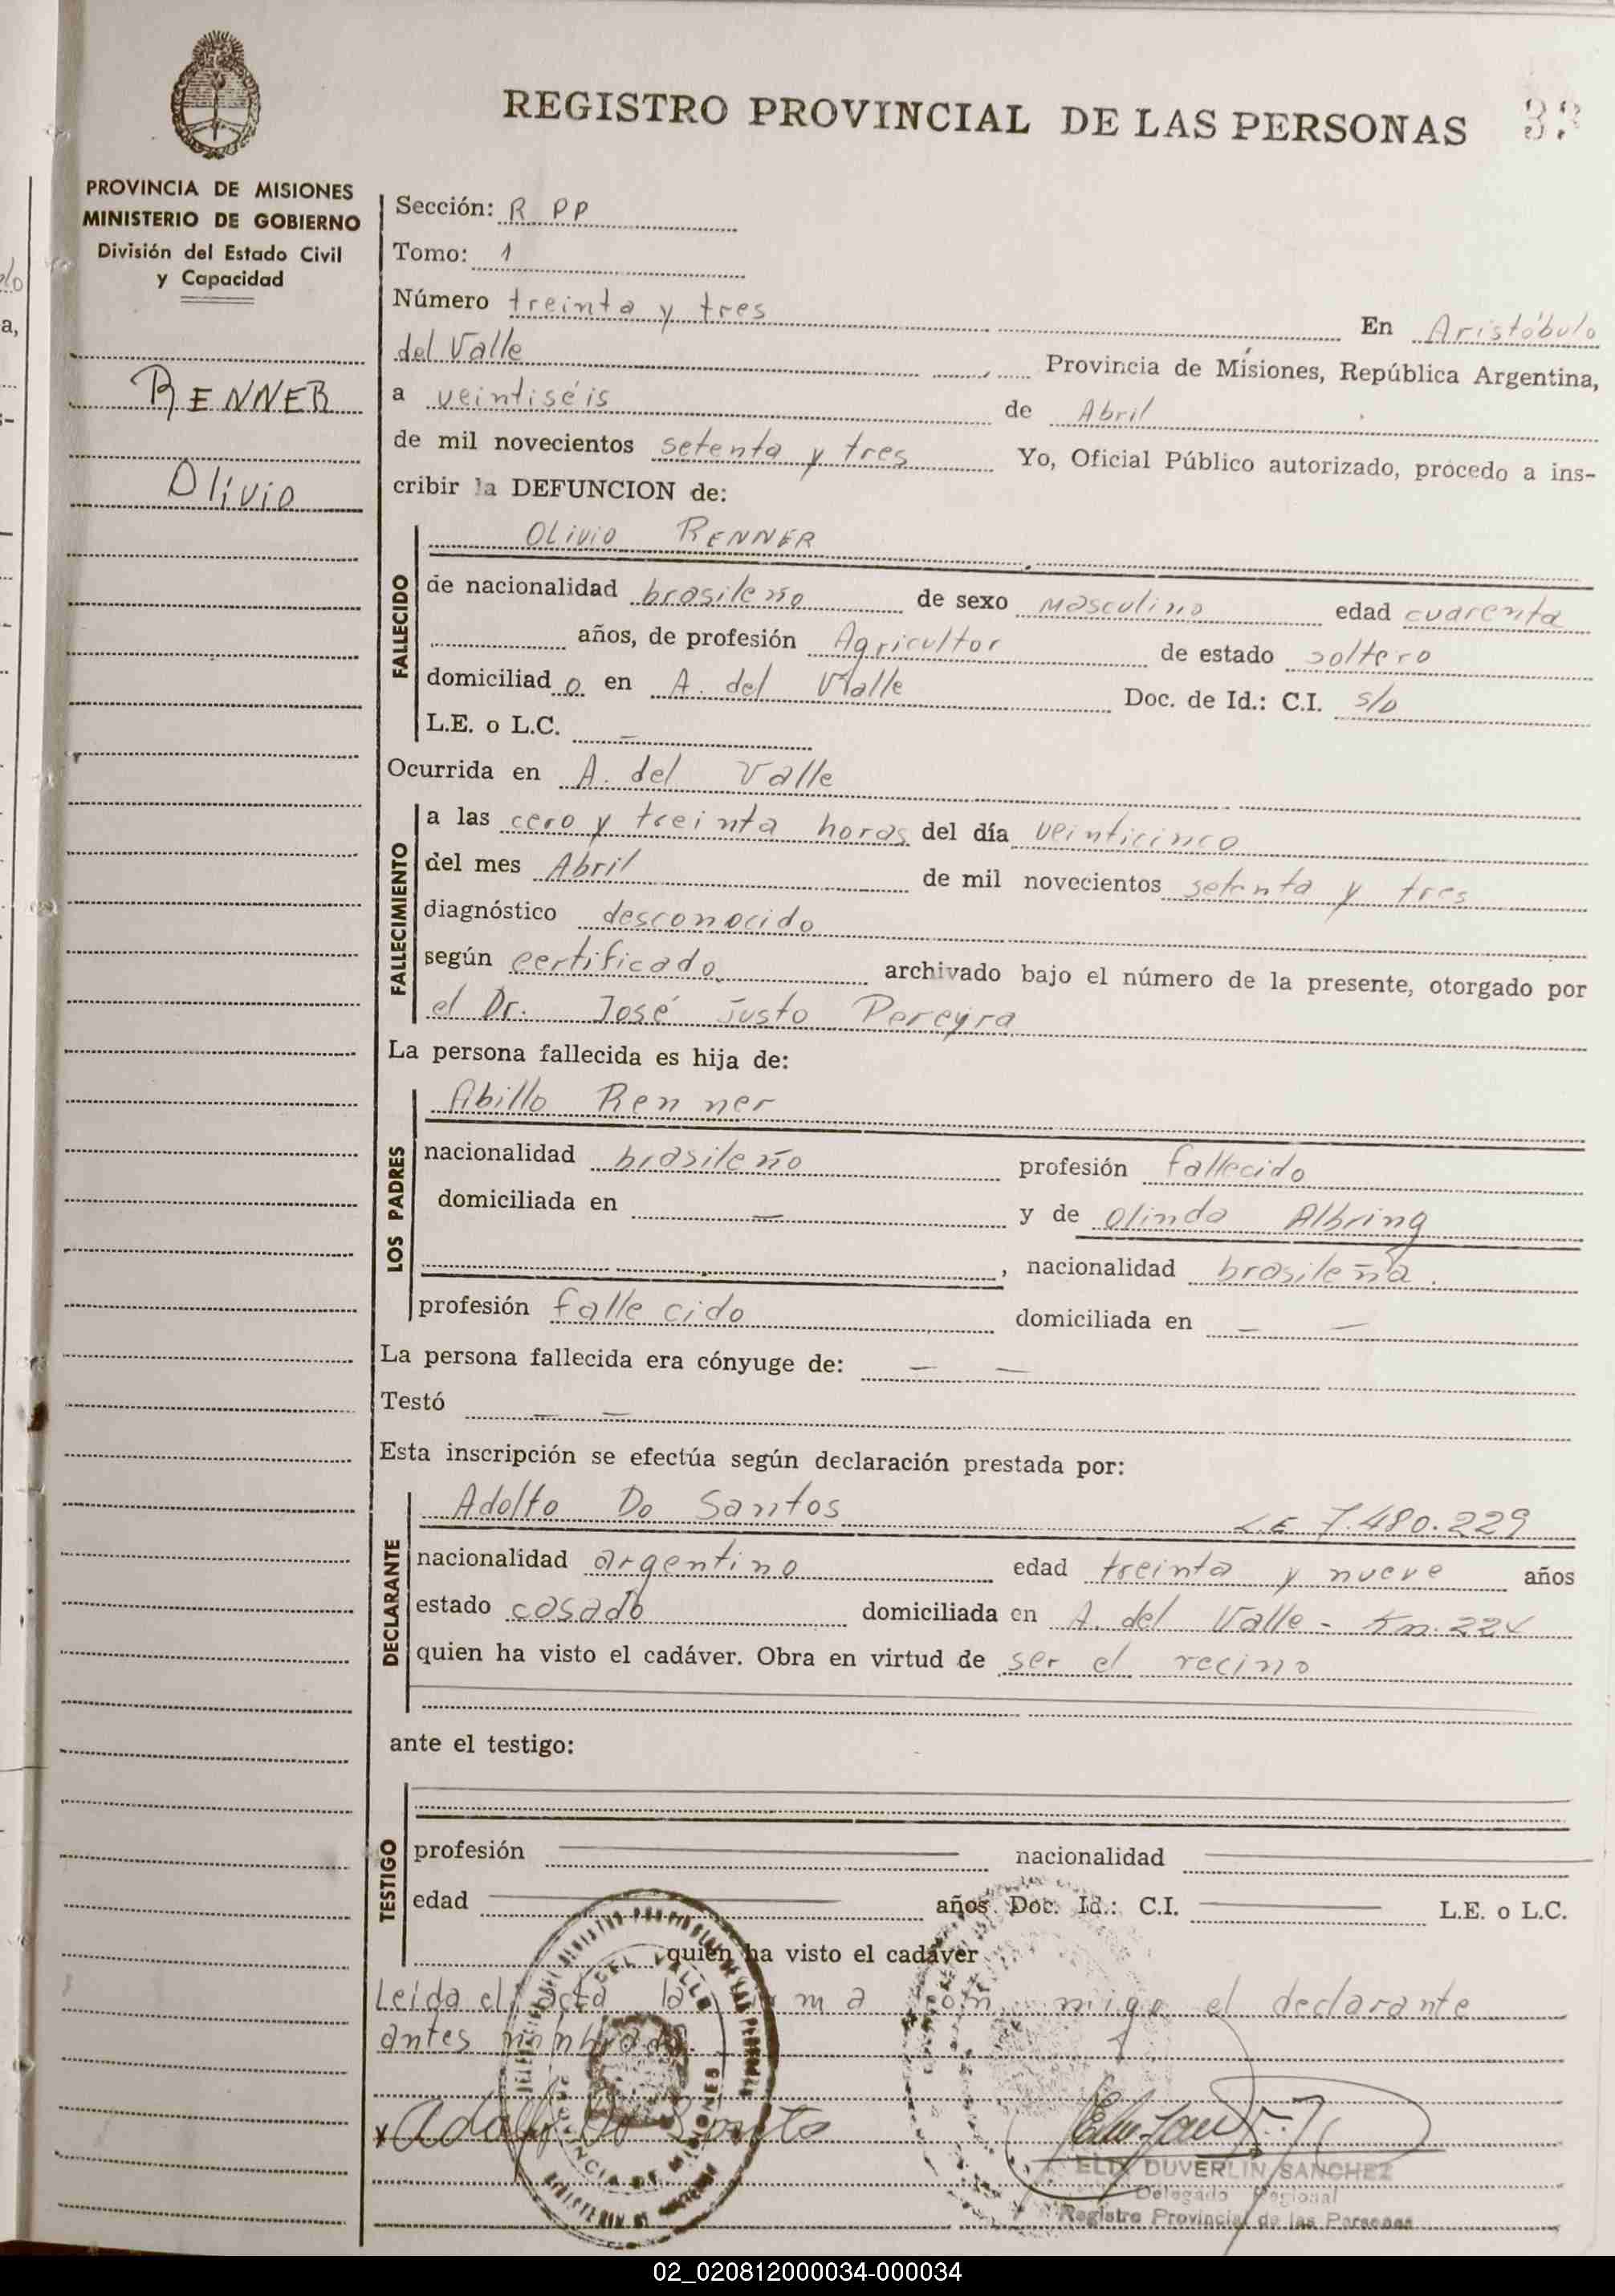 REGISTRO PROVINCIAL DE LAS PERSONAS 33
PROVINCIA DE MISIONES
MINISTERIO DE GOBIERNO
División del Estado Civil
y Capacidad
RENNER
Olivio
Sección: R PP
Tomo: 1
Número treinta y tres En Aristóbulo
del Valle Provincia de Misiones, República Argentina,
a veintiséis de Abril
de mil novecientos setenta y tres Yo, Oficial Público autorizado, procedo a ins-
cribir la DEFUNCION de:
FALLECIDO
OLIVIO RENNER
de nacionalidad brasileño de sexo masculino edad cuarenta
años, de profesión Agricultor de estado soltero
domiciliad o en A. del Valle Doc. de Id.: C.I. s/D
L.E. o L.C. –
Ocurrida en A. del Valle
FALLECIMIENTO
a las cero y treinta horas del día veinticinco
del mes Abril de mil novecientos setenta y tres
diagnóstico desconocido
según certificado archivado bajo el número de la presente, otorgado por
el Dr. José Justo Pereyra
La persona fallecida es hija de:
LOS PADRES
Abillo Renner
nacionalidad brasileño profesión fallecido
domiciliada en — y de Olinda Albring
, nacionalidad brasileña.
profesión fallecido domiciliada en — —
La persona fallecida era cónyuge de: — —
Testó — —
Esta inscripción se efectúa según declaración prestada por:
DECLARANTE
Adolfo Do Santos LE 7.480.229
nacionalidad argentino edad treinta y nueve años
estado casado domiciliada en A. del Valle - Km. 224
quien ha visto el cadáver. Obra en virtud de ser el vecino
ante el testigo:
TESTIGO
profesión nacionalidad
edad años. Doc. Id.: C.I. L.E. o L.C.
quien ha visto el cadáver
Leida el acta la firma conmigo el declarante
antes nombrado.
x Adolfo Do Santo
ELIX DUVERLIN SANCHEZ
Delegado Regional
Registro Provincial de las Personas
02_020812000034-000034